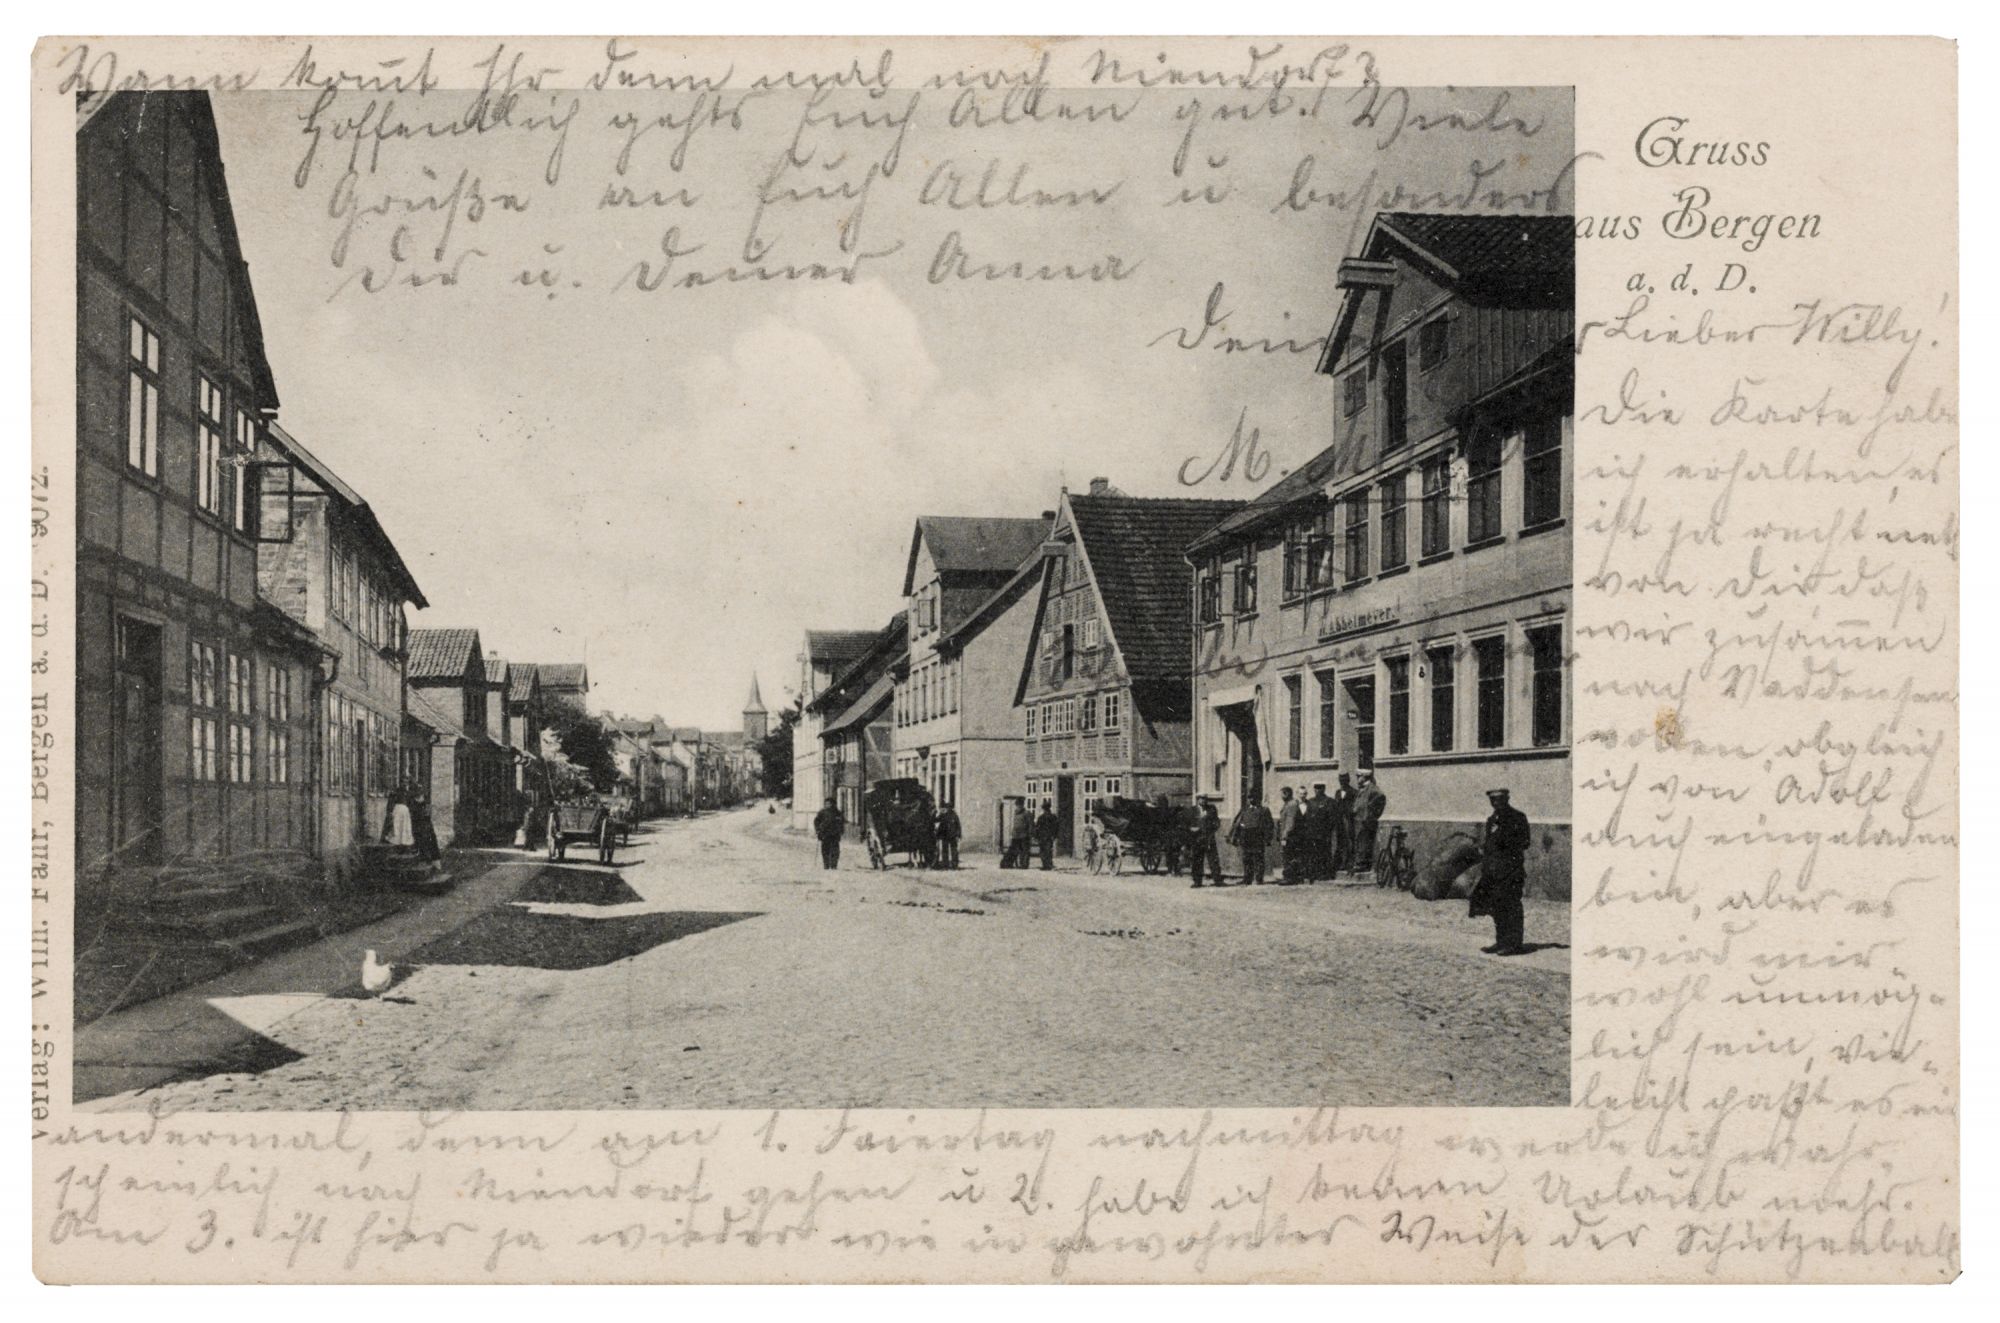 Gruss
aus Bergen
a. d. D.
Lieber Willy!
Die Karte habe
ich erhalten, es
ist ja recht nett
von Dir, daß
wir zusammen
nach Waddensen
wollen, obgleich
ich von Adolf
auch eingeladen
bin, aber es
wird mir
wohl unmög-
lich sein, vie-
leicht paßt es ein
andermal, denn am 1. Feiertag nachmittag werde ich wahr-
scheinlich nach Niendorf gehen u 2. habe ich keinen Urlaub mehr.
Am 3. ist hier ja wieder wie in gewohnter Weise der Schützenball.
Wann komt Ihr denn mal nach Niendorf?
Hoffentlich gehts Euch Allen gut. Viele
Grüße an Euch Allen u besonders
Dir u. Deiner Anna
Dein
M. M
Verlag: Wilh. Fahr, Bergen a. d. D. 9072.